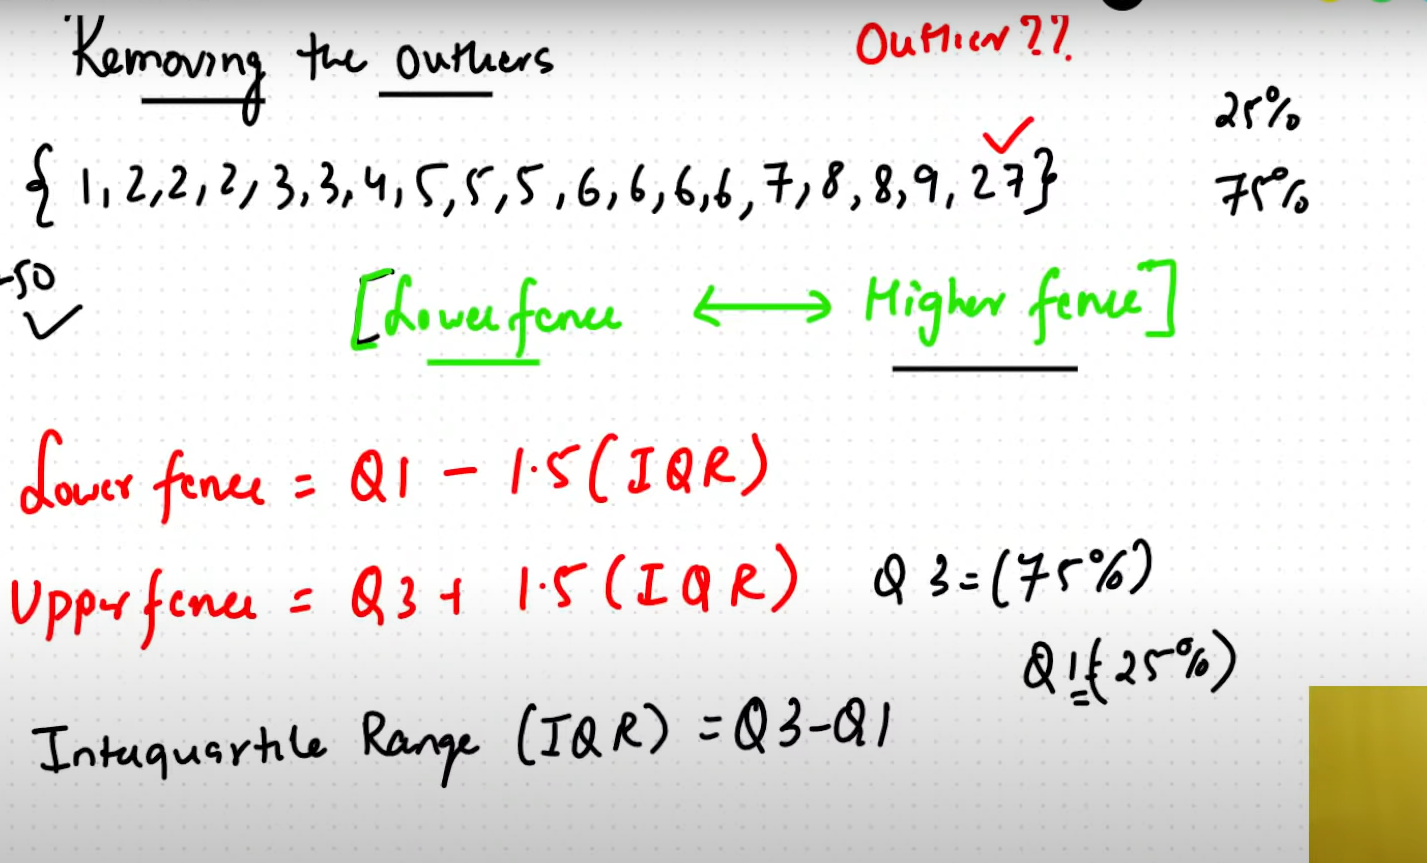 Removing the outliers
Outlier??
25%
75%
{ 1, 2, 2, 2, 3, 3, 4, 5, 5, 5, 6, 6, 6, 6, 7, 8, 8, 9, 27}
-50
[Lower fence ⟷ Higher fence]
Lower fence = Q1 - 1.5(IQR)
Upper fence = Q3 + 1.5(IQR)
Q3=(75%)
Q1(25%)
Interquartile Range (IQR) = Q3-Q1